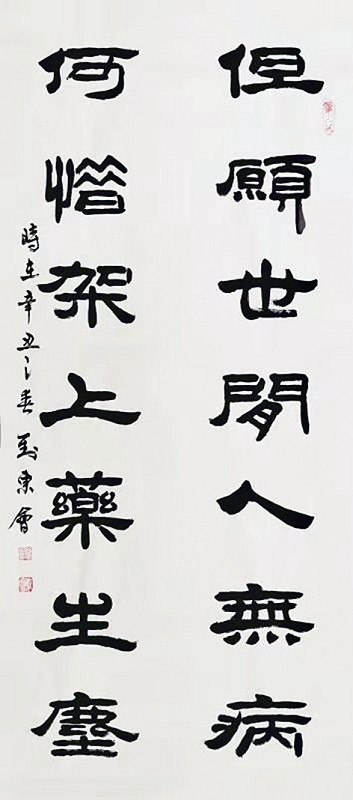 但願世間人無病
何惜架上藥生塵
時在辛丑之春 劉東會